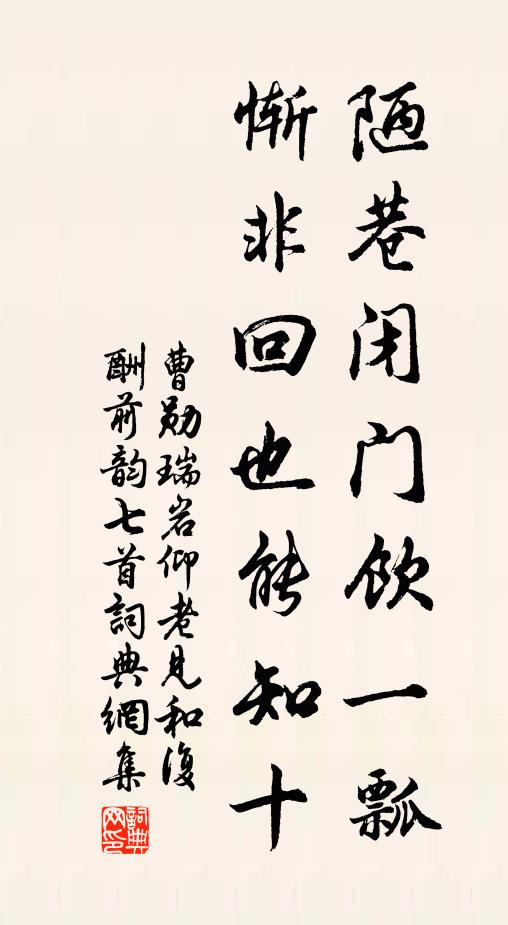 陋巷闭门饮一瓢
惭非回也能知十
曹勋瑞岩仰老见和復
酬前韵七首詞典網集
詞典
网印